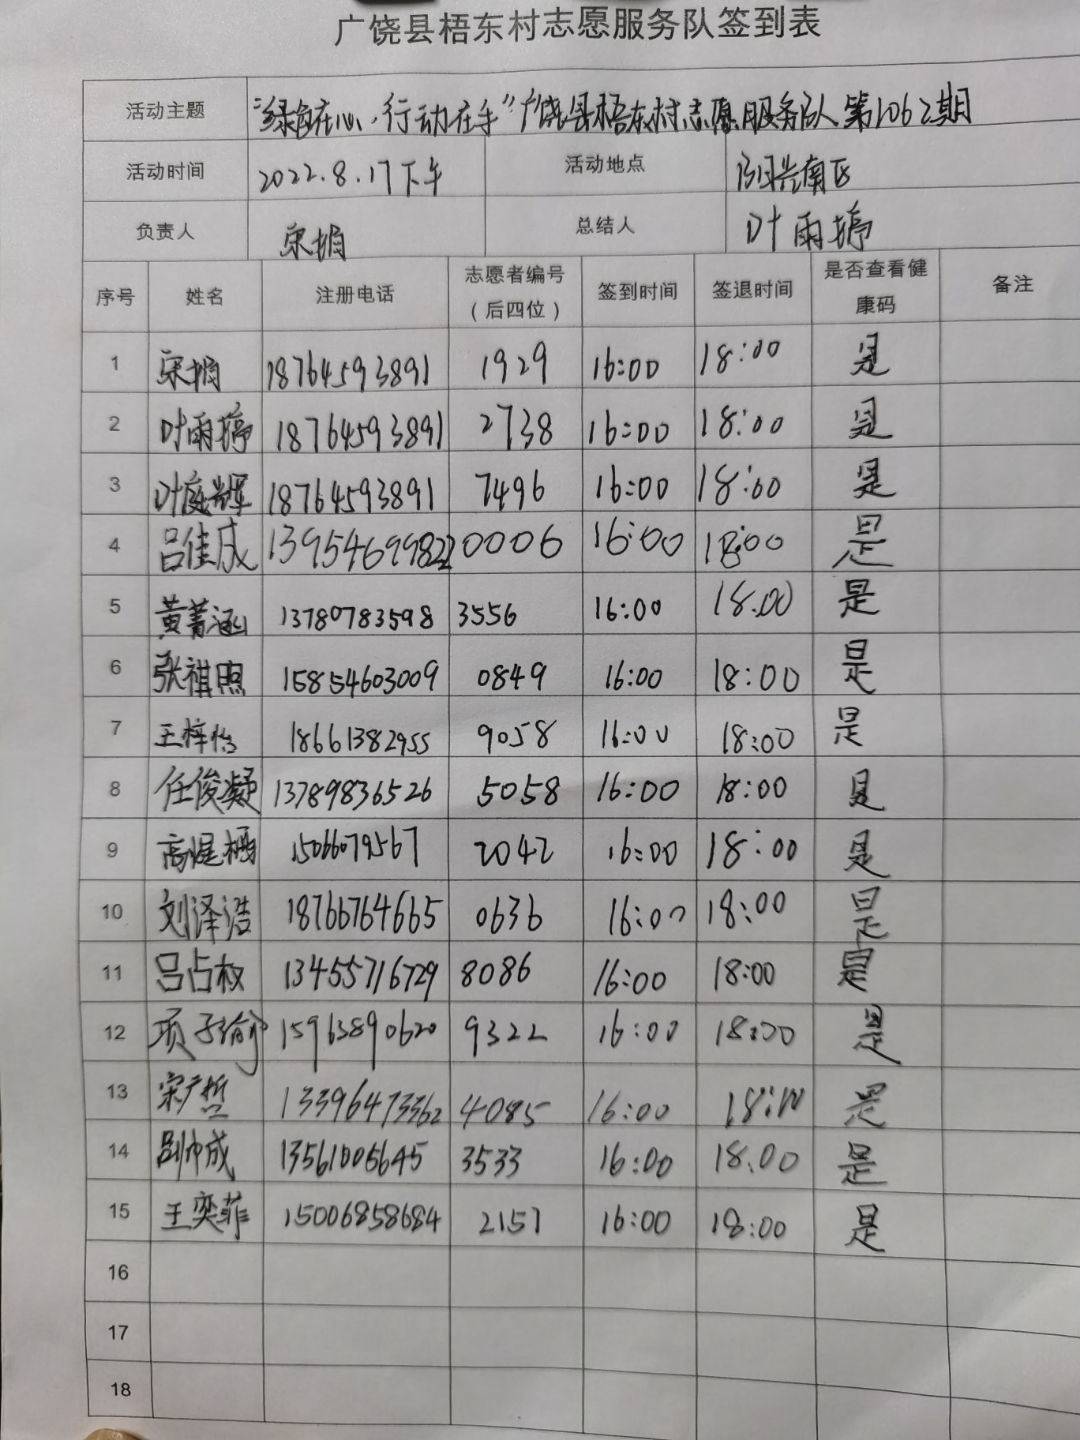 广饶县梧东村志愿服务队签到表
活动主题 “绿色在心，行动在手”广饶县梧东村志愿服务队第1062期
活动时间 2022.8.17下午 活动地点 阳光南区
负责人 宋娟 总结人 叶雨婷
序号 姓名 注册电话 志愿者编号（后四位） 签到时间 签退时间 是否查看健康码 备注
1 宋娟 18764593891 1929 16:00 18:00 是
2 叶雨婷 18764593891 2738 16:00 18:00 是
3 叶庭辉 18764593891 7496 16:00 18:00 是
4 吕佳成 13954699822 0006 16:00 18:00 是
5 黄菁涵 13780783598 3556 16:00 18.00 是
6 张祺照 15854603009 0849 16:00 18:00 是
7 王梓怡 18661382955 9058 16:00 18:00 是
8 任俊凝 13789836526 5058 16:00 18:00 是
9 高煜 15066079567 2042 16:00 18:00 是
10 刘泽浩 18766764665 0636 16:00 18:00 是
11 吕占权 13455716729 8086 16:00 18:00 是
12 项子瑜 15963890620 9322 16:00 18:00 是
13 宋广哲 13396473362 4085 16:00 18:00 是
14 帅成 13561005645 3533 16:00 18.00 是
15 王奕菲 15006858684 2157 16:00 18:00 是
16
17
18